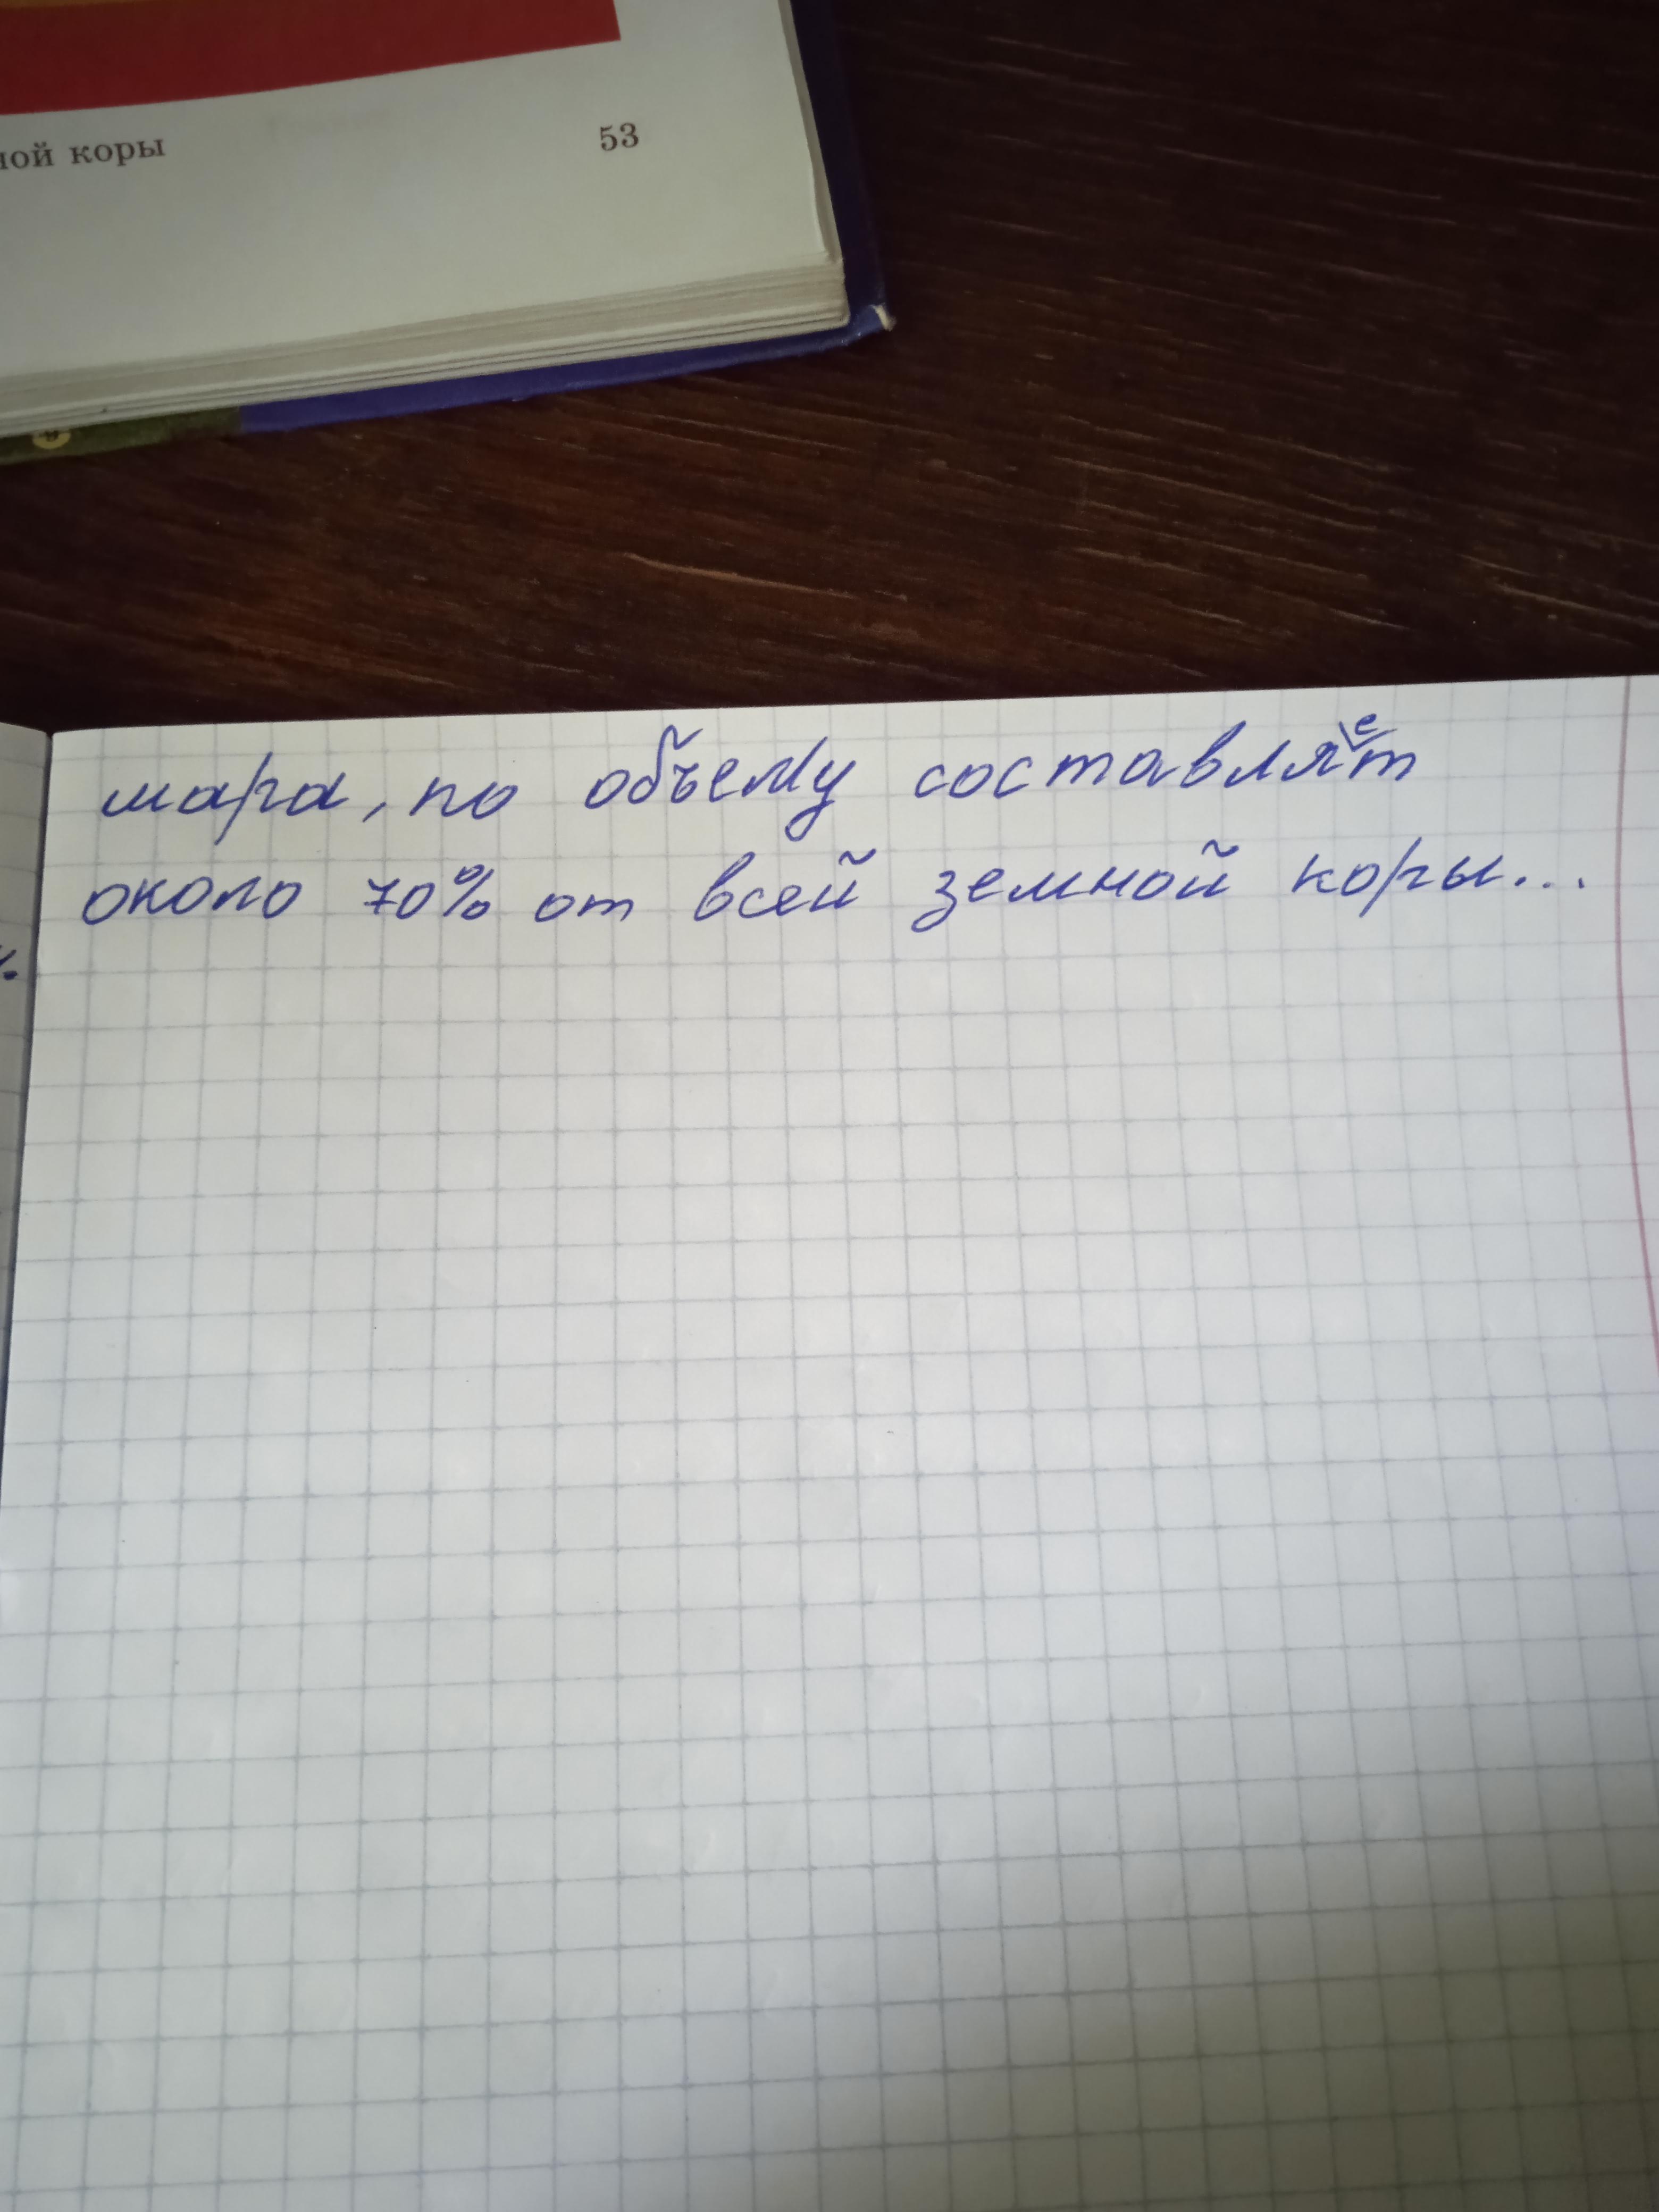 ной коры 53
шара, по объему составляет
около 70% от всей земной коры...